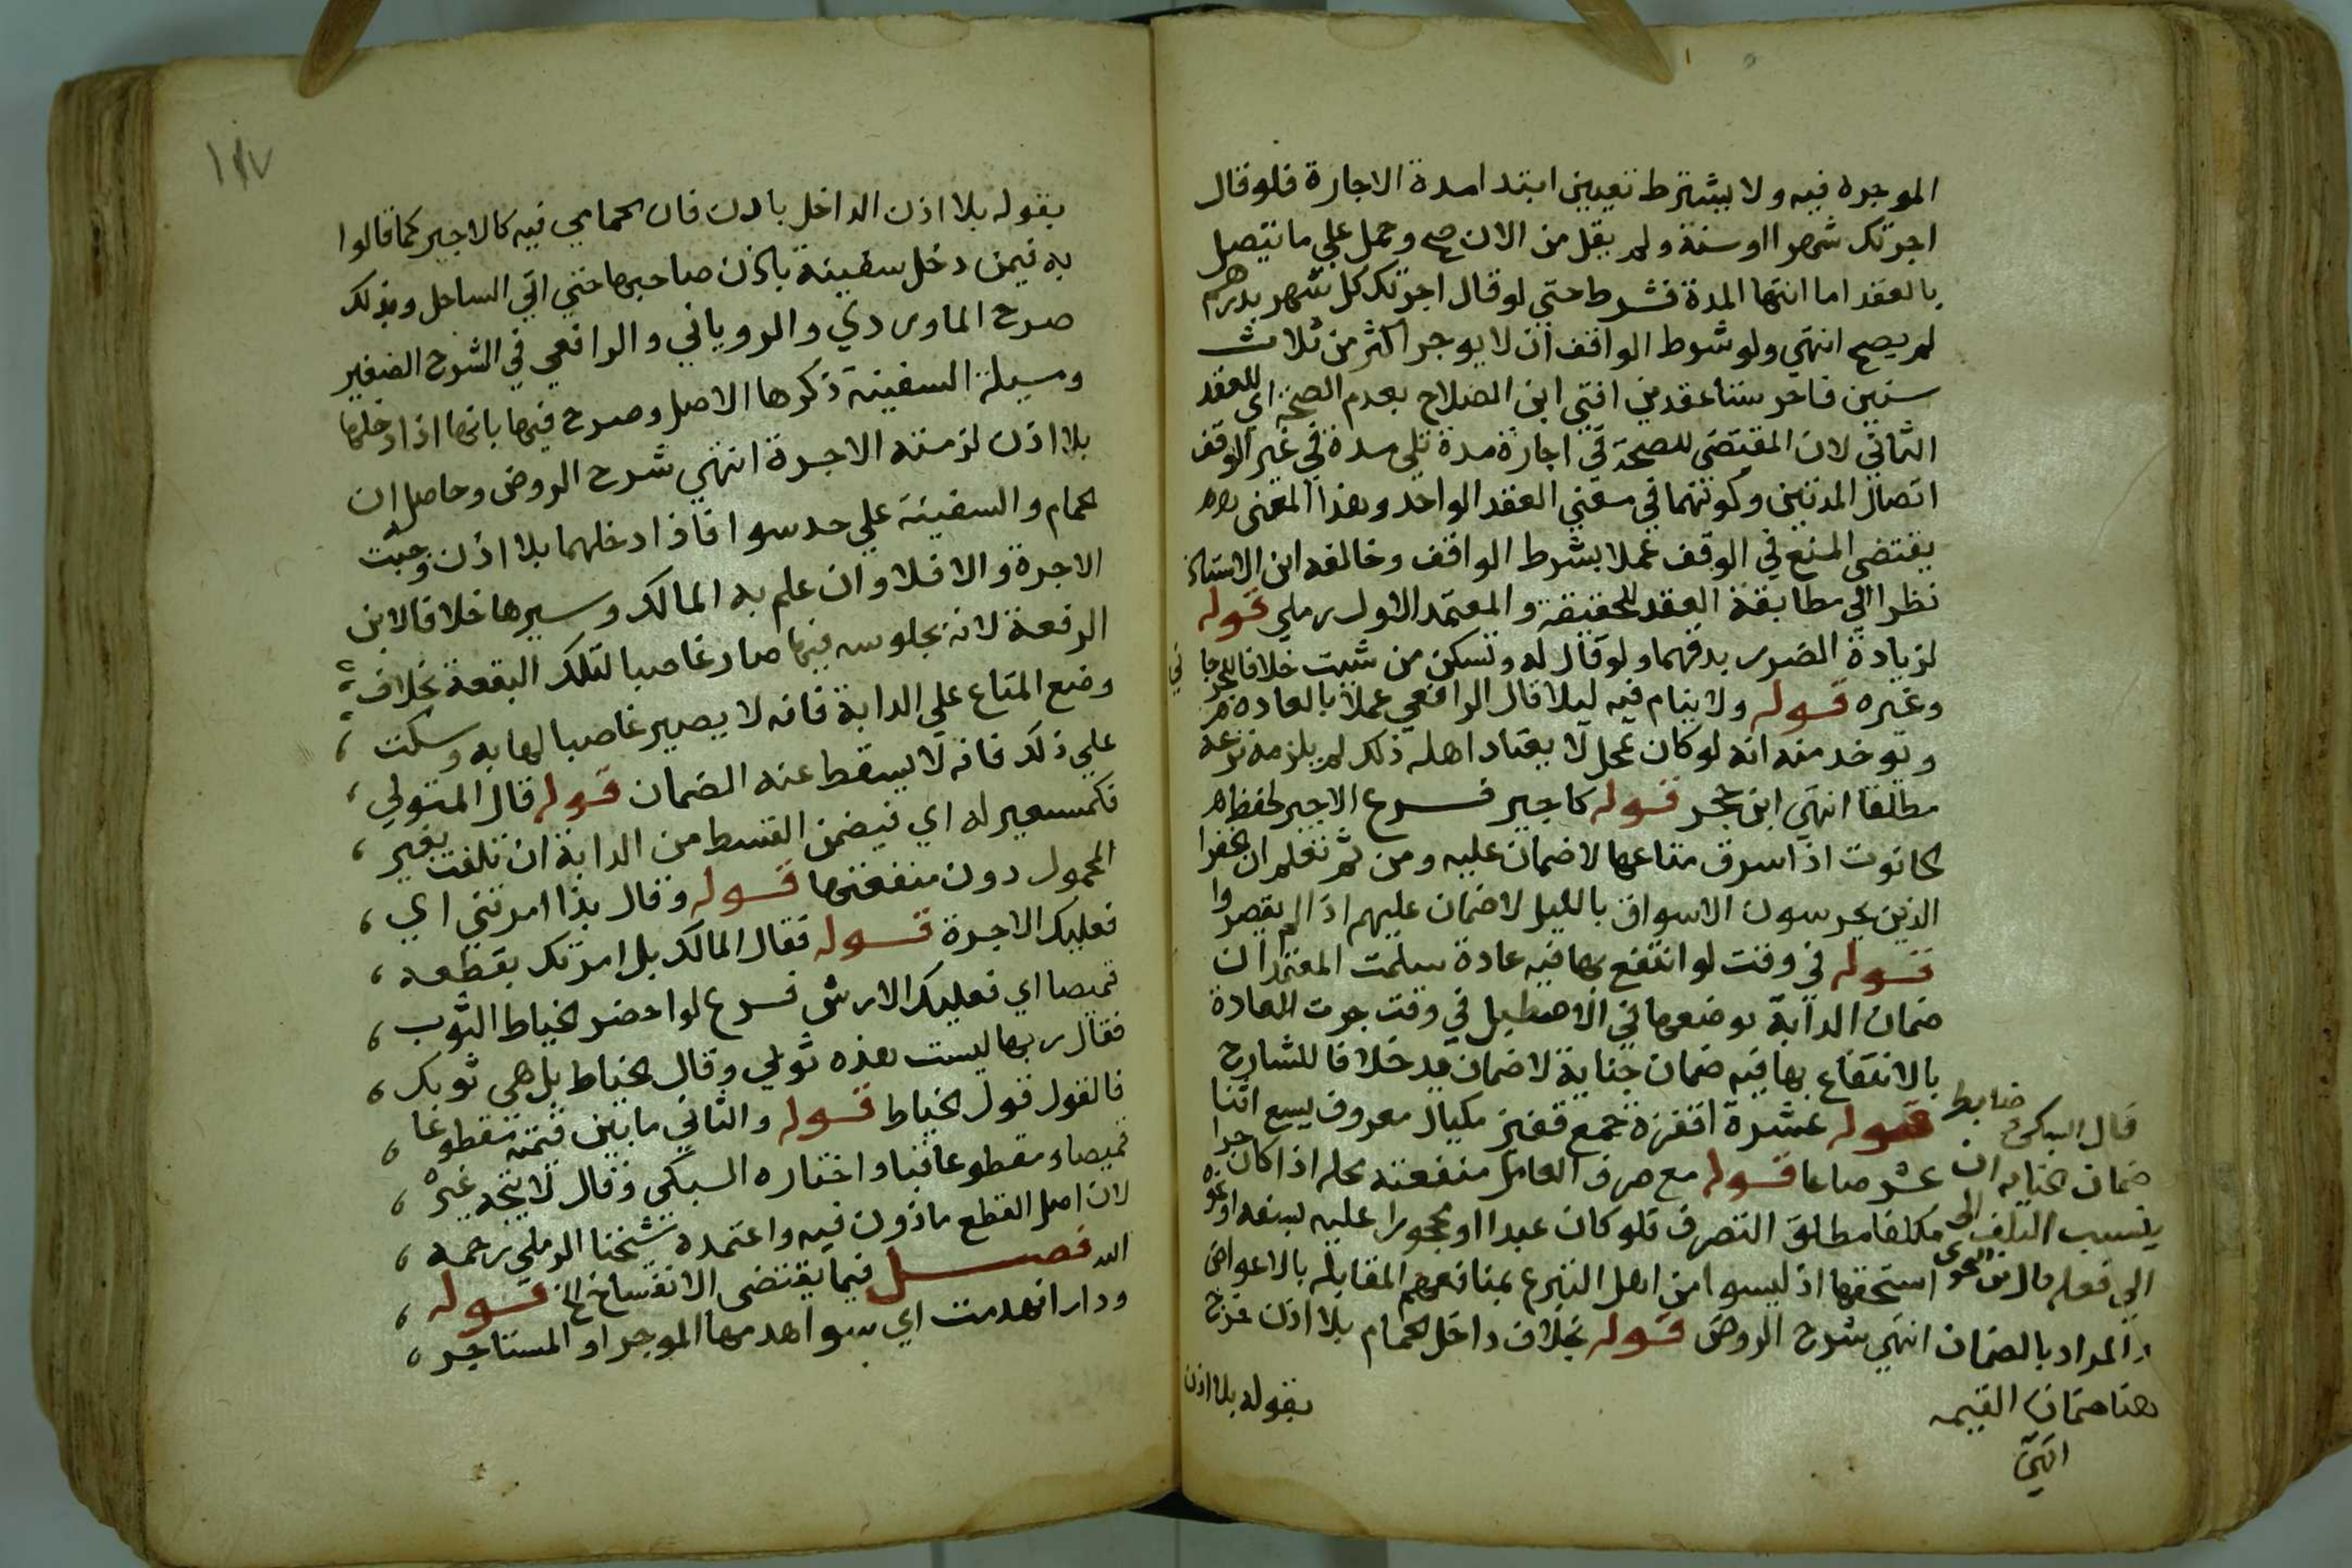 الموجره فيه ولا يشترط تعيين ابتدا مدة الاجارة فلو قال
اجرتك شهرا او سنة ولم يقل من الان صح وحمل علي ما يتصل
بالعقد اما انتها المدة فشرط حتي لو قال اجرتك كل شهر بدرهم
لم يصح انتهي ولو شرط الواقف ان لا يوجر اكثر من ثلاث
سنين فاجر ستا عقدين افتي ابن الصلاح بعدم الصحة اي للعقد
الثاني لان المقتضي للصحة في اجارة مدة تلي مدة في غير الوقف
اتصال المدتين وكونهما في معني العقد الواحد وهذا المعني
يقتضي المنع في الوقف عملا بشرط الواقف وخالفه ابن الاستاذ
نظرا الي مطابقة العقد للحقيقة والمعتمد الاول رملي قوله
لزيادة الضرر بدقهما ولو قال له وتسكن من شيت خلافا
وغيره قوله ولا ينام فيه ليلا قال الرافعي عملا بالعاده
ويوخذ منه انه لو كان بمحل لا يعتاد اهله ذلك لم يلزمه نزعه
مطلقا انتهي ابن حجر قوله كاجير فرع الاجير لحفظ
الحانوت اذا سرق متاعها لا ضمان عليه ومن ثم نعلم ان الخفرا
الذين يحرسون الاسواق بالليل لا ضمان عليهم اذا لم يقصروا
قوله في وقت لو انتفع بها فيه عادة سلمت المعتمد ان
ضمان الدابة بوضعها في الاصطبل في وقت جرت العادة
بالانتفاع بها فيه ضمان جناية لا ضمان يد خلافا للشارح
قوله عشرة اقفزة جمع قفيز مكيال معروف يسع اثنا
عشر صاعا قوله مع صرف العامل منفعته محله اذا كان حرا
مكلفا مطلق التصرف فلو كان عبدا او محجورا عليه بسفه او نحوه
استحقها اذ ليسوا من اهل التبرع بمنافعهم المقابلة بالاعواض
انتهي شرح الروض قوله بخلاف داخل الحمام بلا اذن خرج
بقوله بلا اذن
قال السبكي ضابط
ضمان الجنايه ان
ينسب التلف الي
الي فعله قال
والمراد بالضمان
هنا ضمان القيمه
انتهي
١٨٧
بقوله بلا اذن الداخل باذن فان الحمامي فيه كالاجير كما قالوا
به فيمن دخل سفينة باذن صاحبها حتي اتي الساحل وبذلك
صرح الماوردي والروياني والرافعي في الشرح الصغير
ومسيلة السفينة ذكرها الاصل وصرح فيها بانها اذا دخلها
بلا اذن لزمته الاجرة انتهي شرح الروض وحاصله ان
الحمام والسفينة علي حد سوا فاذا دخلهما بلا اذن وجبت
الاجرة والا فلا وان علم به المالك وسيرها خلافا لابن
الرفعة لانه بجلوسه فيها صار غاصبا لتلك البقعة بخلاف
وضع المتاع علي الدابة فانه لا يصير غاصبا لها به وسكت
علي ذلك فانه لا يسقط عنه الضمان قوله قال المتولي
فكمستعير له اي فيضمن القسط من الدابة ان تلفت بغير
المحمول دون منفعتها قوله وقال بذا امرتني اي
فعليك الاجرة قوله فقال المالك بل امرتك بقطعه
قميصا اي فعليك الارش فرع لو احضر الخياط الثوب
فقال ربها ليست هذه ثوبي وقال الخياط بل هي ثوبك
فالقول قول الخياط قوله والثاني ما بين قيمته مقطوعا
قميصا ومقطوعا قبا واختاره السبكي وقال لا يتجه غيره
لان اصل القطع ماذون فيه واعتمده شيخنا الرملي رحمه
الله فصل فيما يقتضي الانفساخ الخ قوله
ودار انهدمت اي سوا هدمها الموجر او المستاجر